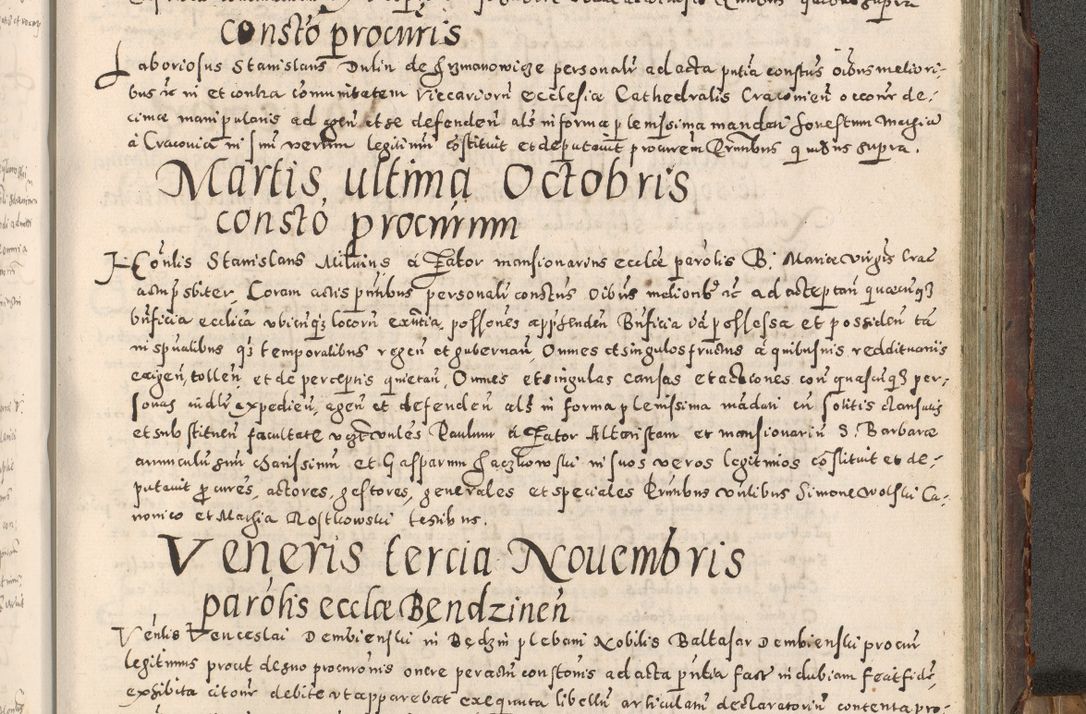 Constō procuris
Laboriosus Stanislaus Dulin de Szymanowicze personalr ad acta pntia constus oibus meliori,
bus &c in et contra comunitatem Viccariorū ecclesiæ Cathedralis Cracovien occoñe de,
cimæ manipularis ad agen̄ et se defenden̄ als in forma plenissima mandan̄ honestum Mathiā
à Cracovia in suū verum legitimū cōstituit et deputavit procurem Pñtibus quibus supra.
Martis ultima Octobris
constō procurum
Honlis Stanislaus Milvius à Zator mansionarius eccłæ parōlis B. Mariæ virgīs Crac
actu psbiter, Coram actis pñtibus personalr constus oibus meliorib &c ad acceptan̄ quæcūqz
bñficia ecclica ubicūqz locorū exñtia, possōnes apprenden̄ Bñficia vā possessa et possiden̄ tā
in spualibus qz temporalibus regen̄ et gubernan̄, Omnes et singulos fructus à quibusvis reddituariis
exigen, tollen̄, et de perceptis quietan̄, Omnes et singulas causas et actiones con̄ quascūqz per,
sonas iudlr expedien̄, agen̄ et defenden̄ als in forma plenissima mādan̄ cū solitis clausulis
et substituen̄ facultate Paulum à Zator Altaristam et mansionariū S. Barbaræ
avunculū suū charissimū et Gasparum Jaczkowski in suos veros legitimos cōstituit et de,
putavit pcures, actores, gestores, generales et speciales Pñtibus vnlibus Simone Wolski Ca,
nonico et Mathia Rostkowski testibus.
Veneris tercia Novembris
parōlis eccłæ Bendzinen̄
Venlis Venceslai Dembienski in Będzin plebani Nobilis Baltasar Dembienski procur
legitimus prout de suo procurōnis onere per actū constōnis ad acta pñtia factæ indubiam fecit fidē,
exhibita citōnr debite ut apparebat exequuta libellū articulatū declaratoriū contenta pro,